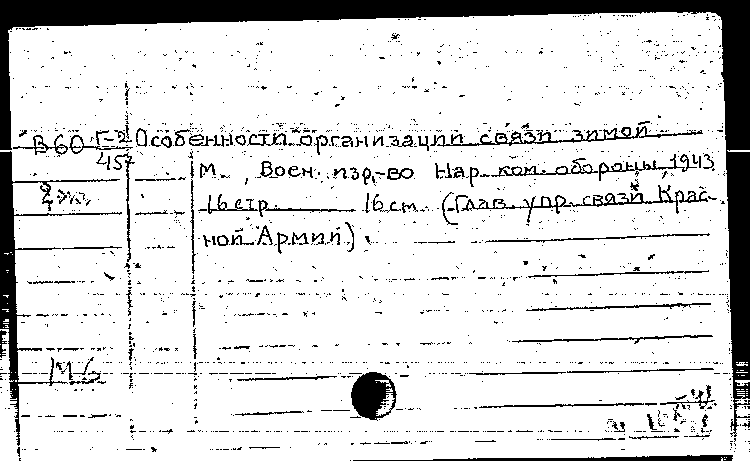 В60 Г-2 Особенности организации связи зимой.
457 М., Воен. изд-во Нар. ком. обороны, 1943
2 экз. 16 стр. 16 см. (Глав. упр. связи Крас-
ной Армии).
М6